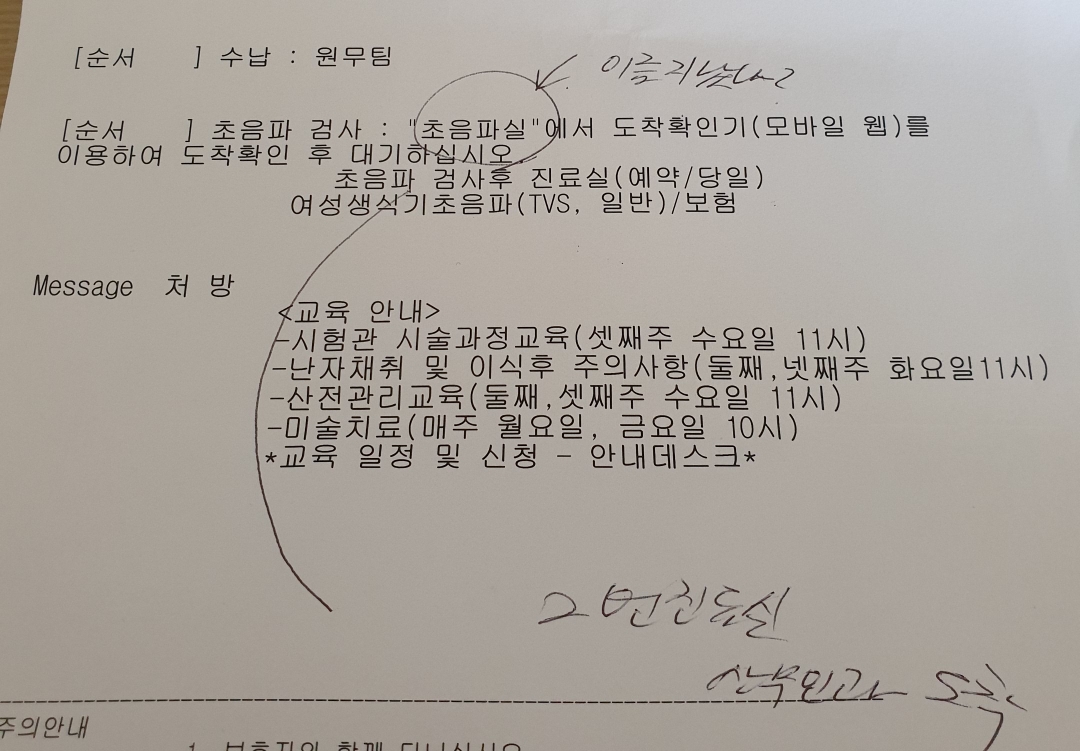 [순서 ] 수납 : 원무팀
[순서 ] 초음파 검사 : "초음파실"에서 도착확인기(모바일 웹)를
이용하여 도착확인 후 대기하십시오.
초음파 검사후 진료실(예약/당일)
여성생식기초음파(TVS, 일반)/보험
Message 처 방
<교육 안내>
-시험관 시술과정교육(셋째주 수요일 11시)
-난자채취 및 이식후 주의사항(둘째,넷째주 화요일11시)
-산전관리교육(둘째,셋째주 수요일 11시)
-미술치료(매주 월요일, 금요일 10시)
*교육 일정 및 신청 - 안내데스크*
산부인과
주의안내
1. 보호자와 함께 다니십시오